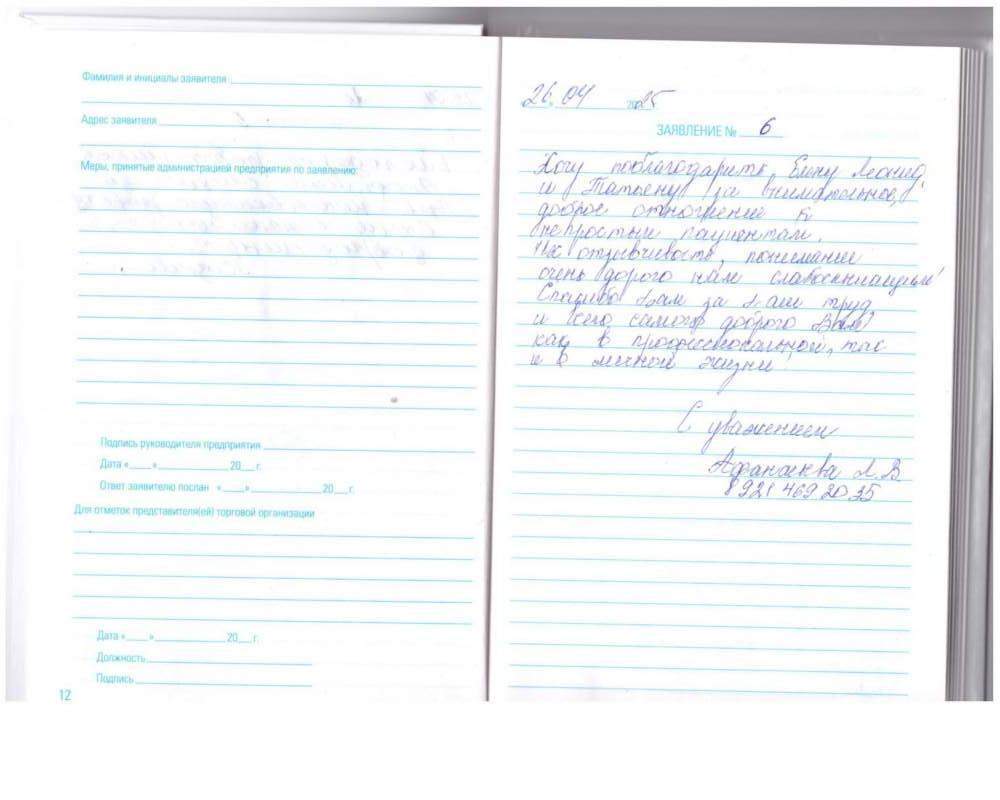 Фамилия и инициалы заявителя
Адрес заявителя
Меры, принятые администрацией предприятия по заявлению:
Подпись руководителя предприятия
Дата «____»____________ 20__ г.
Ответ заявителю послан «____»____________ 20__ г.
Для отметок представителя(ей) торговой организации
Дата «____»____________ 20__ г.
Должность
Подпись
12
26.04 2025
ЗАЯВЛЕНИЕ № 6
Хочу поблагодарить Елену Леонид.
и Татьяну за внимательное,
доброе отношение к
непростым пациентам.
Их отзывчивость, понимание
очень дорого нам слабослышащим!
Спасибо Вам за Ваш труд
и всего самого доброго Вам
как в профессиональной, так
и в личной жизни!
С уважением
Афанасьева Л.В.
8921 469 20 35